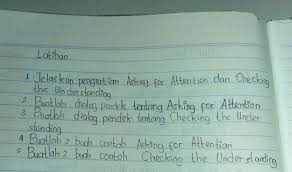 Latihan
1. Jelaskan pengertian Asking for Attention dan Checking
the Understanding
2. Buatlah dialog pendek tentang Asking for Attention
3. Buatlah dialog pendek tentang Checking the Under
standing
4 Buatlah 2 buah contoh Asking for Attention
5 Buatlah 2 buah contoh Checking the Under standing